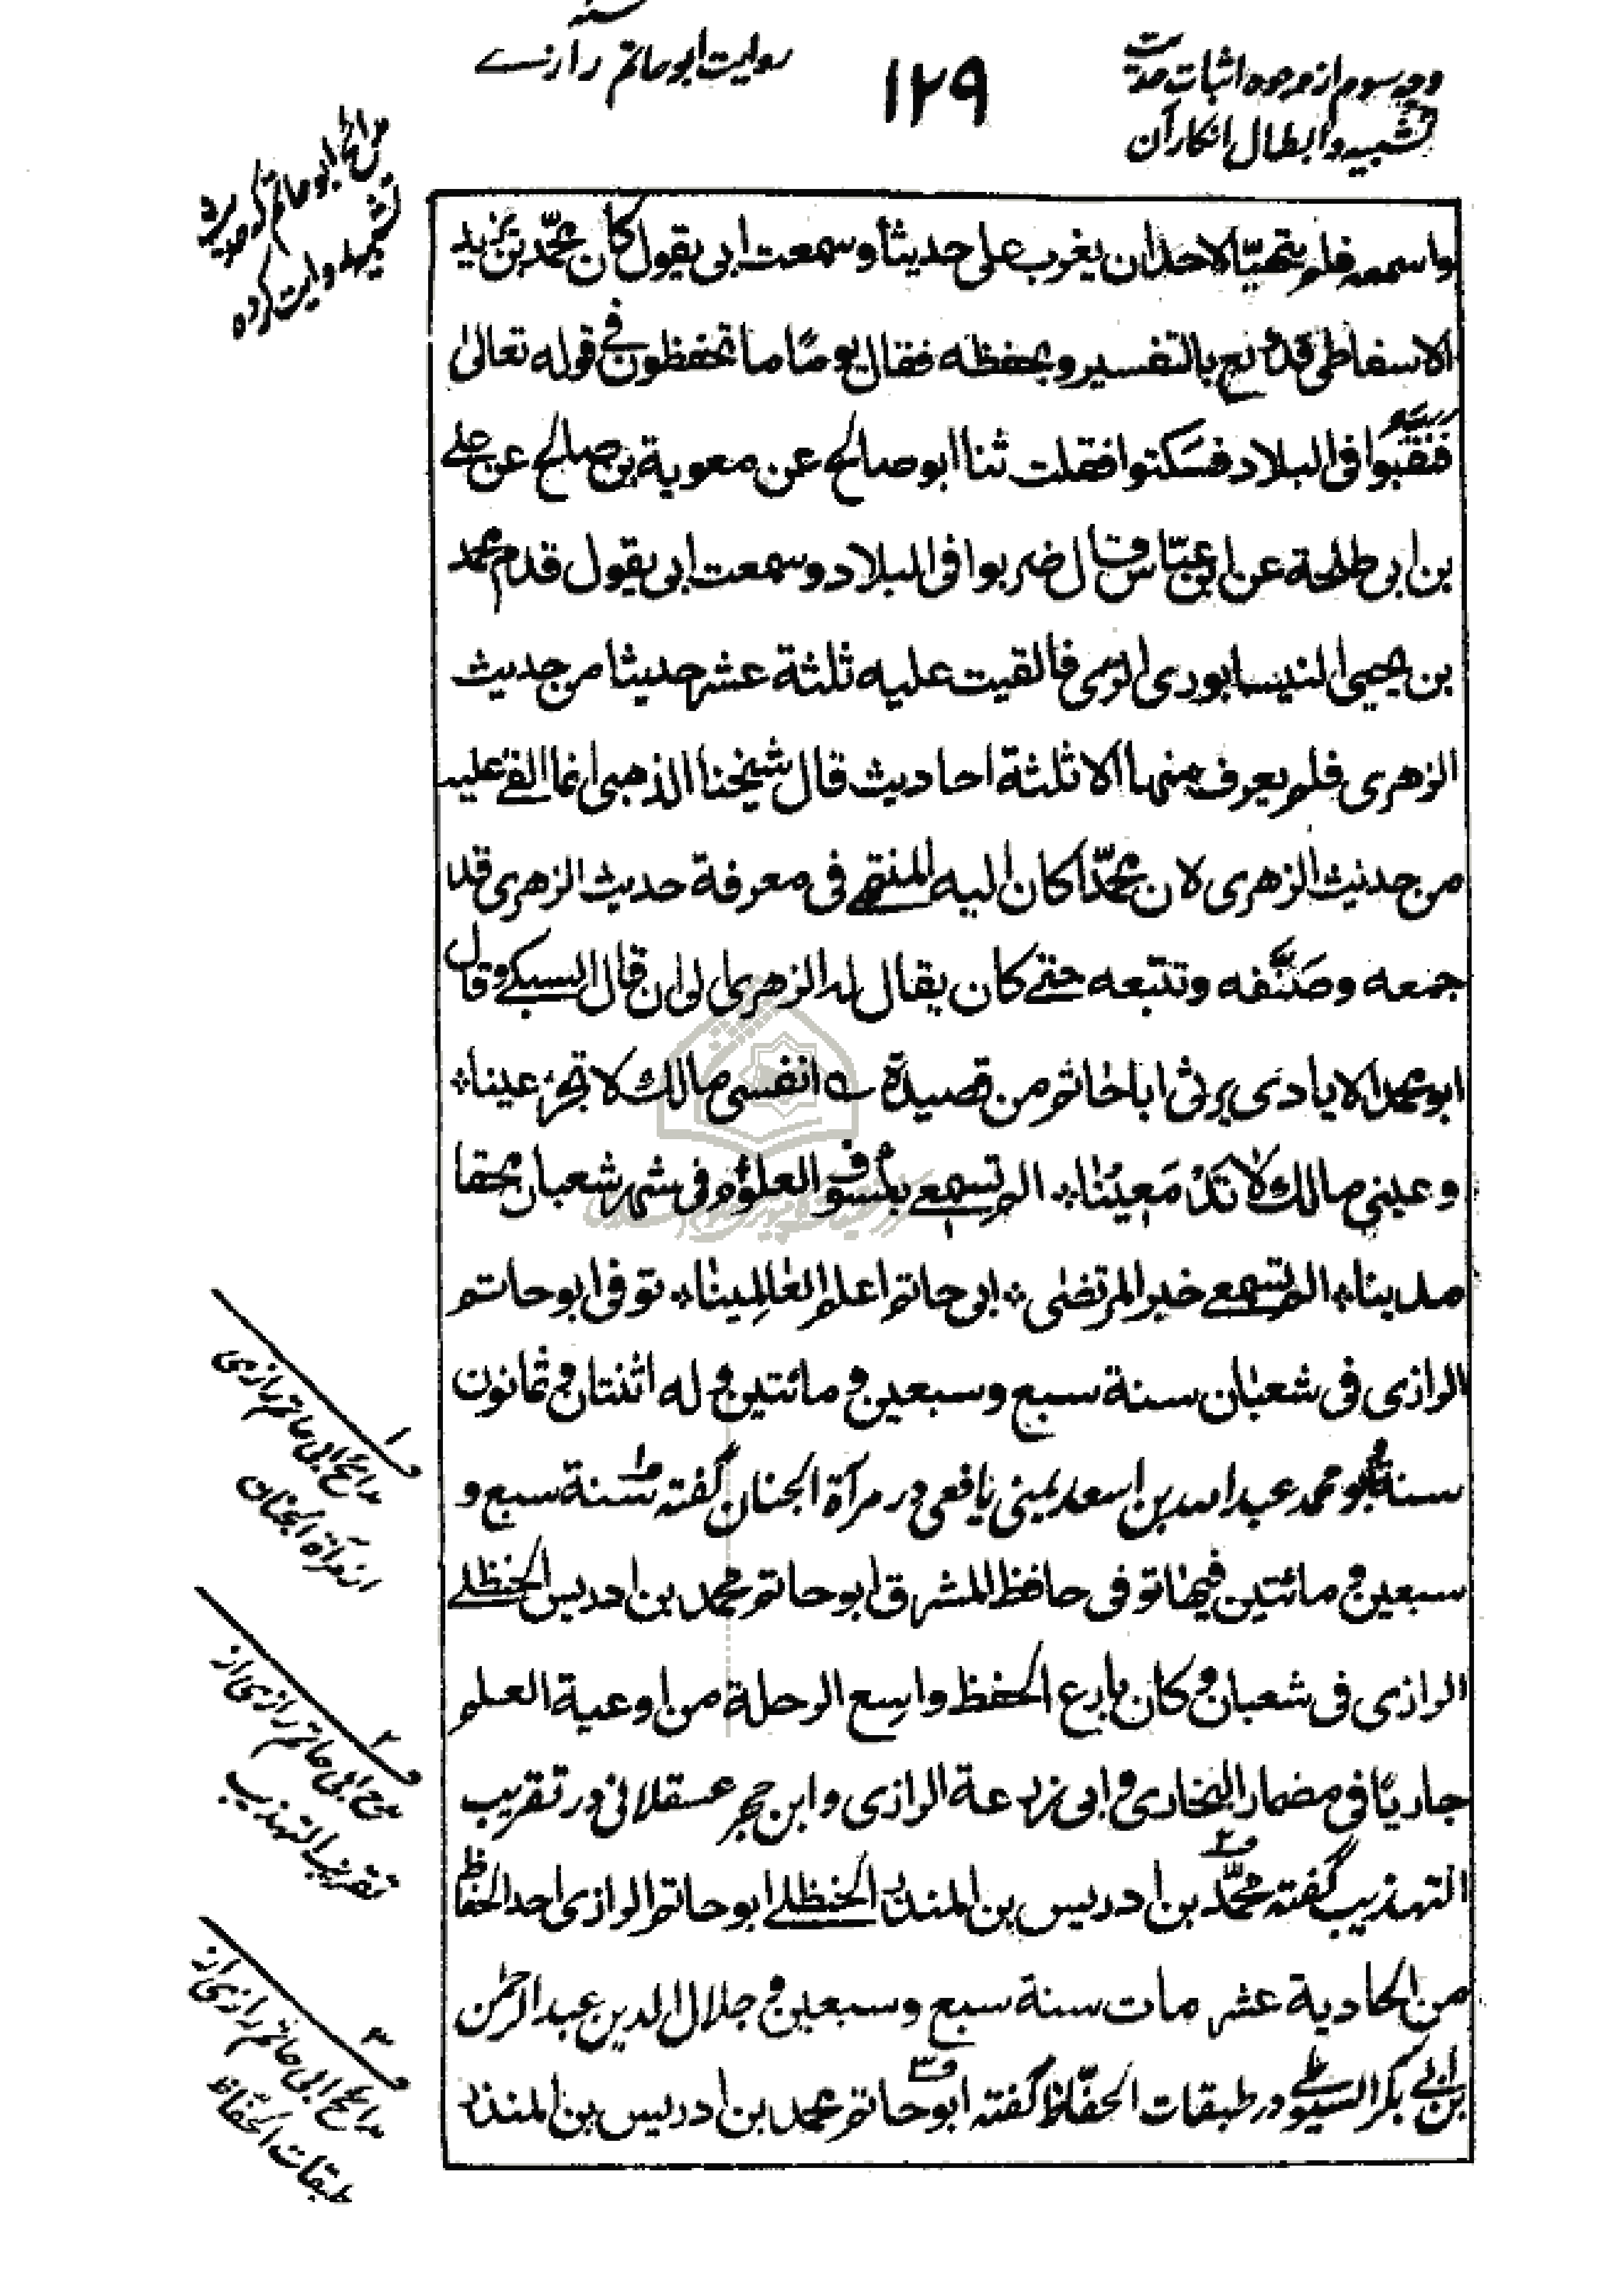 وجه سوم از وجوه اثبات حدیث
تشبیه و ابطال انکار آن
۱۲۹
روایت ابو حاتم رازی
مدائح ابو حاتم که حدیث
تشبیه روایت کرده
واسمعه فلم یتهیّا لاحد ان یغرب علی حدیثا وسمعت ابی یقول کان محمّد بن یزید
الاسفاطی قد ولع بالتفسیر و بحفظه فقال یومًا ما تحفظون فی قوله تعالی
فَنَقَّبُوا فی البلاد فسکتوا فقلت ثنا ابو صالح عن معویة بن صالح عن علی
بن ابی طلحة عن ابن عبّاس قال ضربوا فی البلاد وسمعت ابی یقول قدم محمد
بن یحیی النیسابوری الری فالقیت علیه ثلثة عشر حدیثا من حدیث
الزهری فلم یعرف منها الا ثلثة احادیث قال شیخنا الذهبی انما القی علیه
من حدیث الزهری لان محمّدا کان الیه المنتهی فی معرفة حدیث الزهری قد
جمعه وصَنَّفه وتتبّعه حتی کان یقال له الزهری الی ان قال السبکی وقال
ابو محمد الایادی یرثی ابا حاتم من قصیدة انفسی مالک لا تجزعینا
وعینی مالک لا تَدْمَعِینا الم تسمعی بکسوف العلوم فی شهر شعبان محقا
مدینا الم تسمعی خبر المرتضی ابی حاتم اعلم العالمینا توفی ابو حاتم
الرازی فی شعبان سنة سبع وسبعین و مائتین و له اثنتان و ثمانون
سنة و ابو محمد عبد الله بن اسعد یمنی یافعی در مرآة الجنان گفته سنة سبع و
سبعین و مائتین فیها توفی حافظ المشرق ابو حاتم محمد بن ادریس الحنظلی
الرازی فی شعبان و کان بارع الحفظ واسع الرحلة من اوعیة العلم
جاریًا فی مضمار البخاری و ابی زرعة الرازی و ابن حجر عسقلانی در تقریب
التهذیب گفته محمّد بن ادریس بن المنذر الحنظلی ابو حاتم الرازی احد الحفاظ
من الحادیة عشر مات سنة سبع وسبعین و جلال الدین عبد الرحمن
بن ابی بکر السیوطی در طبقات الحفّاظ گفته ابو حاتم محمد بن ادریس بن المنذر
۱
مدائح ابی حاتم رازی
از مرآة الجنان
۲
مدح ابی حاتم رازی از
تقریب التهذیب
۳
مدائح ابی حاتم رازی از
طبقات الحفاظ